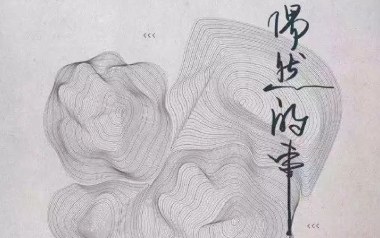 偶然的事
<<<
<<<